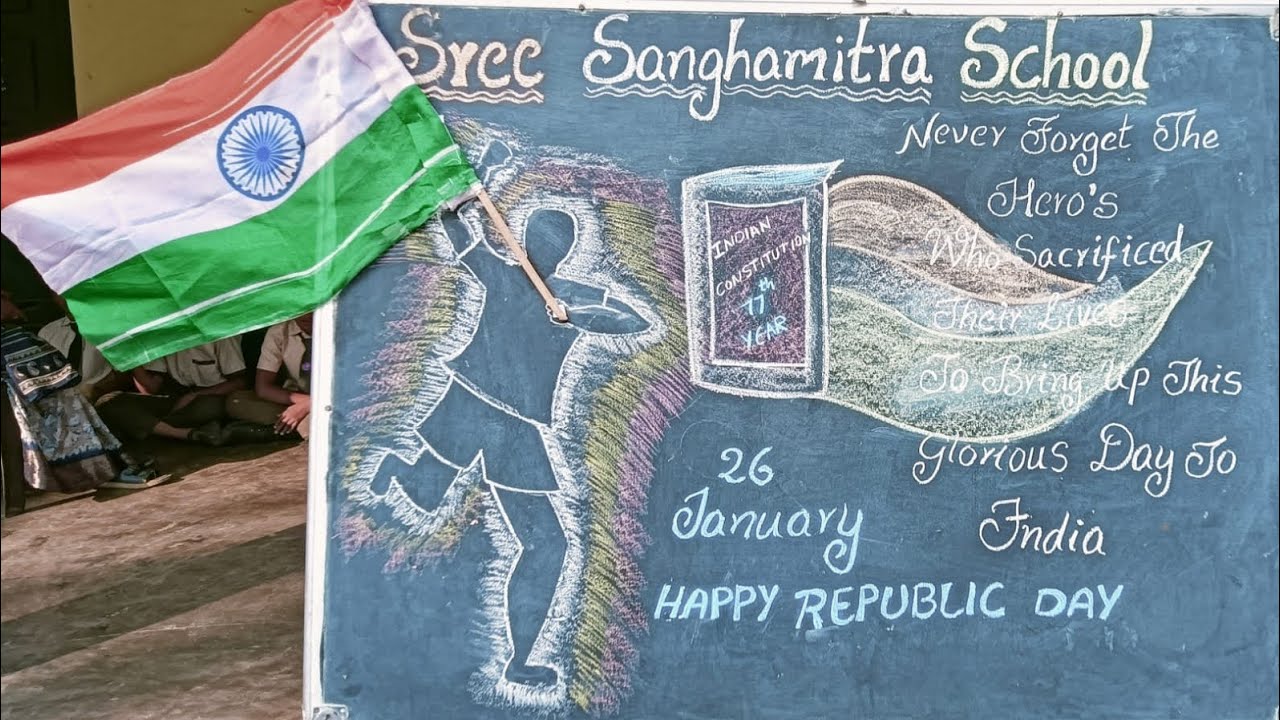 Sree Sanghamitra School
Never Forget The
Hero's
Who Sacrificed
Their Lives
To Bring Up This
Glorious Day To
India
INDIAN
CONSTITUTION
77th
YEAR
26
January
HAPPY REPUBLIC DAY